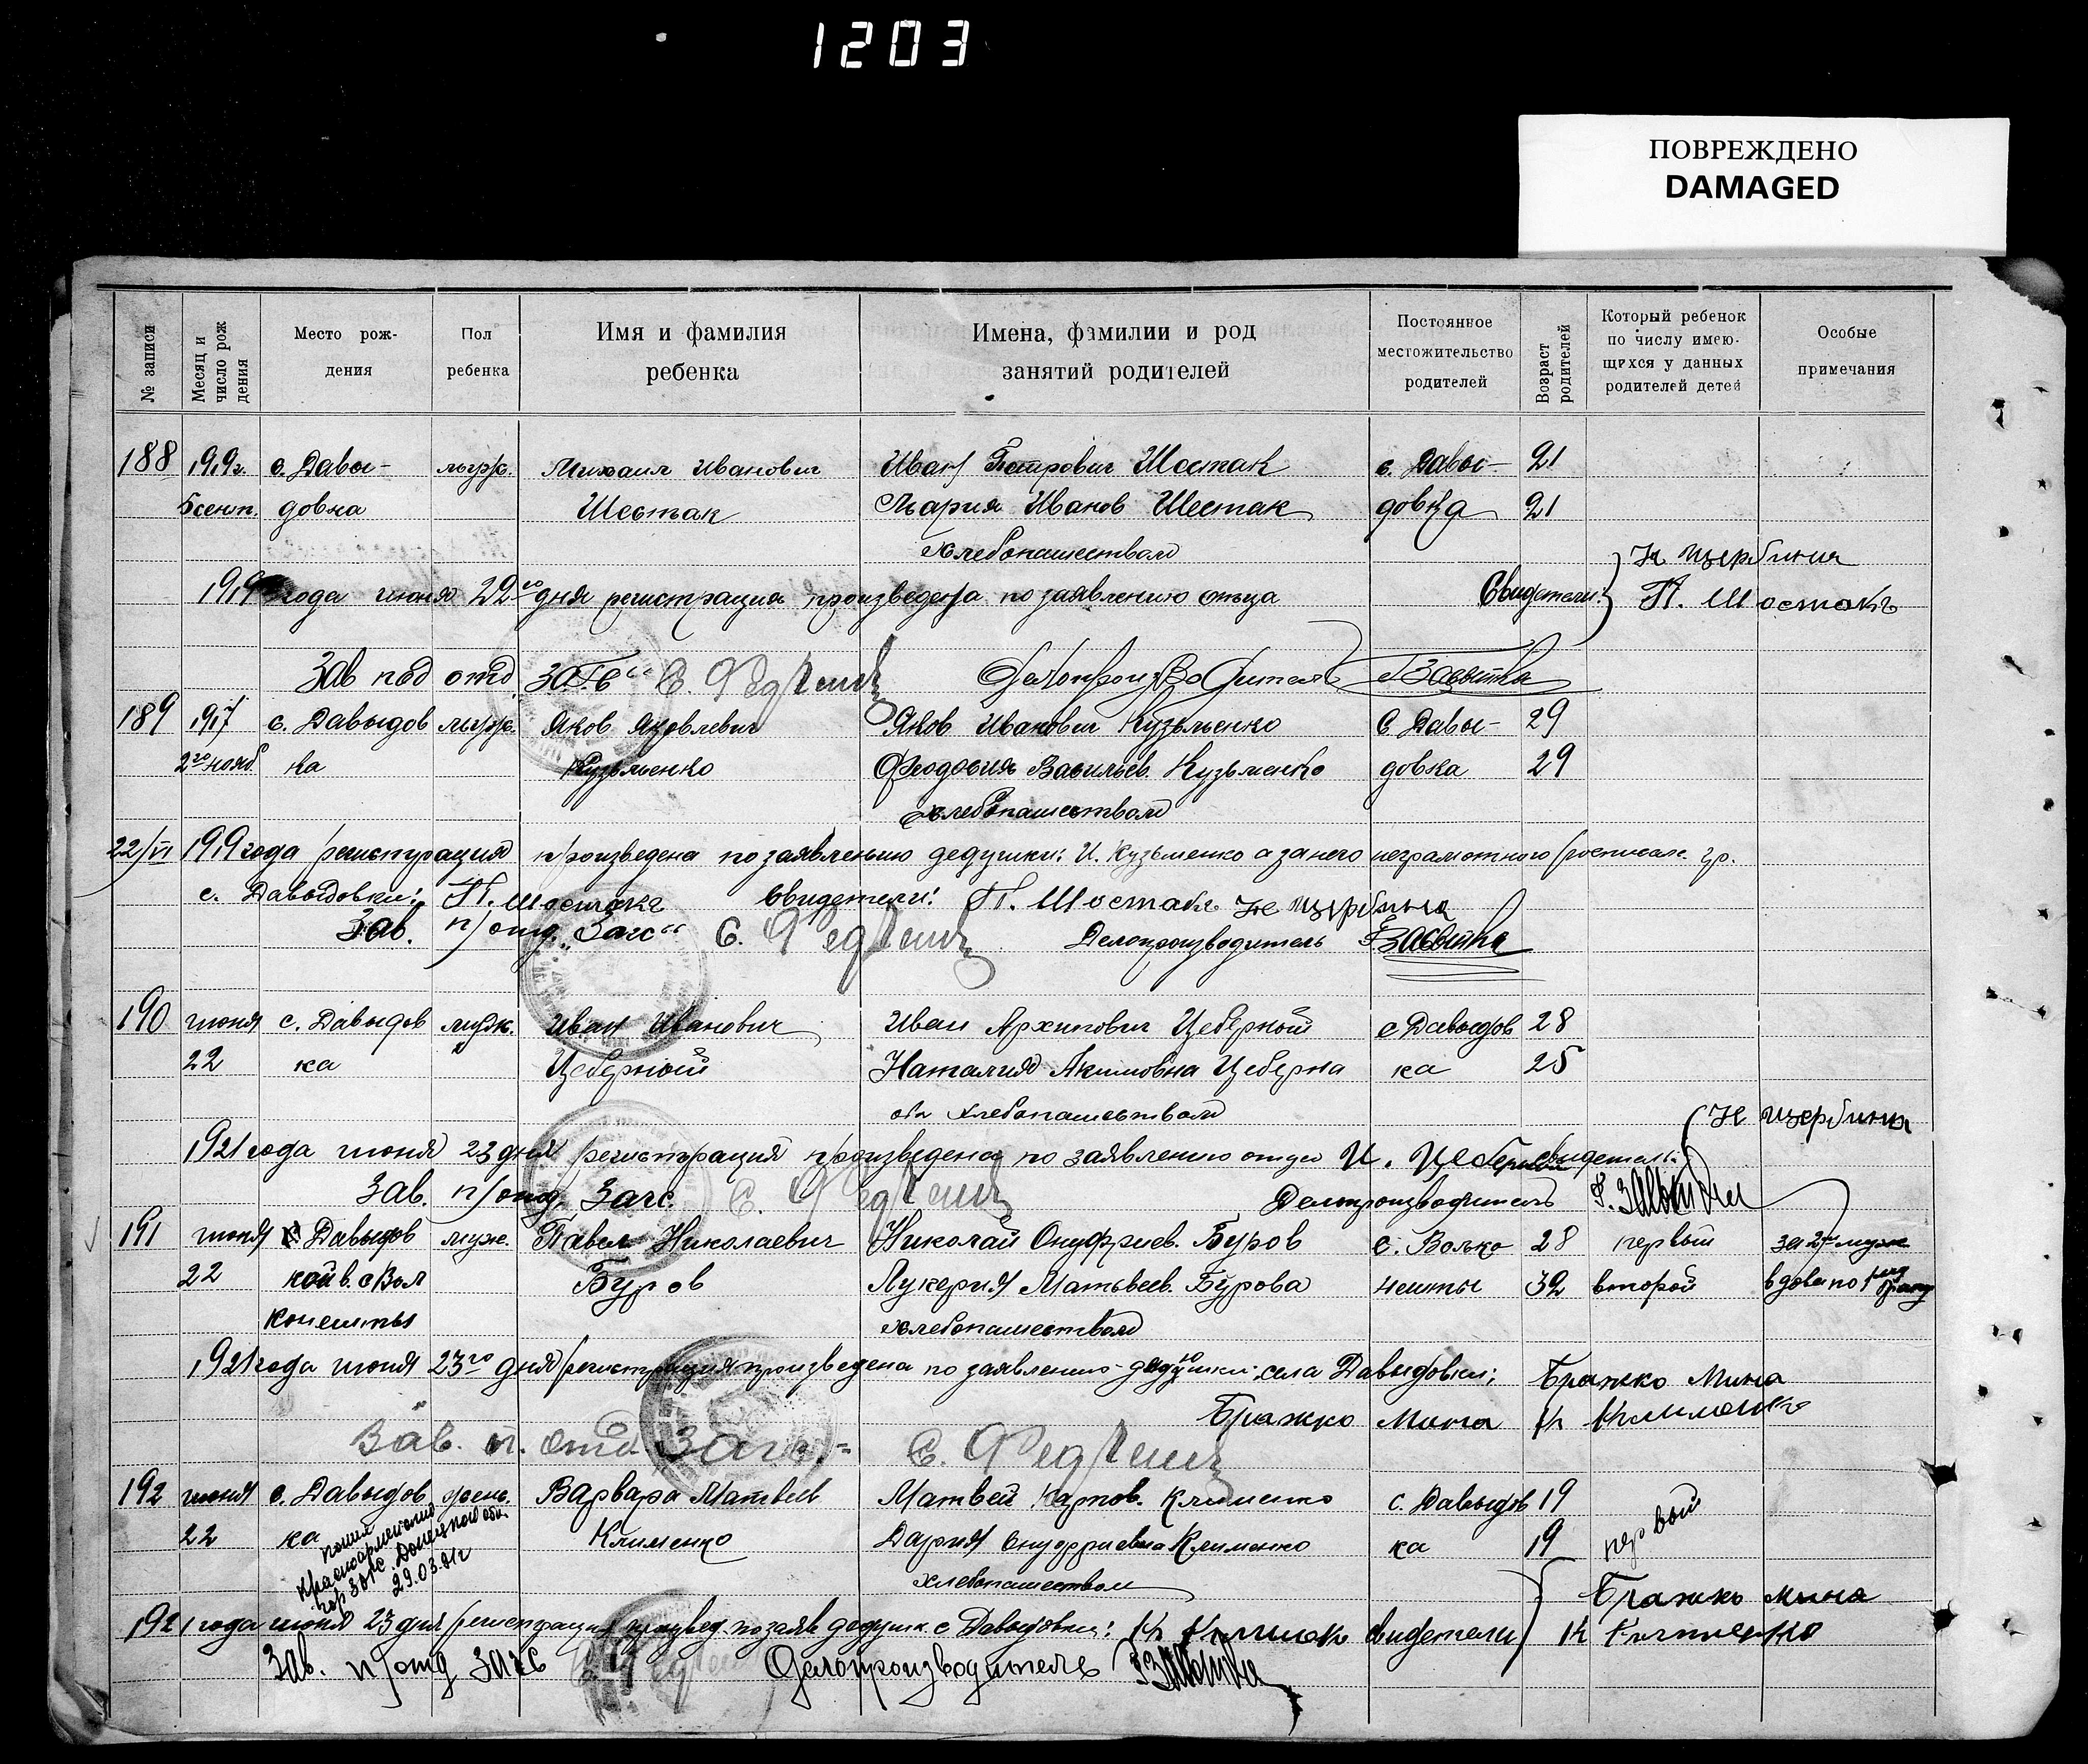 1203
ПОВРЕЖДЕНО
DAMAGED
№ записи
Месяц и число рож дения
Место рож-дения
Пол ребенка
Имя и фамилия ребенка
Имена, фамилии и род занятий родителей
Постоянное местожительство родителей
Возраст родителей
Который ребенок по числу имею-щихся у данных родителей детей
Особые примечания
188 1919г. с. Давы- мужс. Михаил Иванович Иван Петрович Шестак с. Давы- 21
5 сент. довка Шестак Мария Иванов Шестак довка 21
хлебопашеством
Н Щербина
1919 года июня 22го дня регистрация произведена по заявлению отца Свидетели: П. Шостакъ
Зав под отд ЗАГС С. Делопроизводитель
189 1917 с. Давыдов мужс. Яков Яковлевич Яков Иванович Кузьменко с Давы- 29
2го нояб. ка Кузьменко Феодосия Васильев. Кузьменко довка 29
хлебопашеством
22/VI 1919 года регистрация произведена по заявлению дедушки: И. Кузьменко а за него неграмотного росписалс. гр.
с. Давыдовки: П. Шостакъ Свидетели: П. Шостакъ Н Щербина
Зав. п/отд. „Загс" С. Делопроизводитель
190 июня с. Давыдов мужс. Иван Иванович Иван Архипович Цеберный с Давыдов 28
22 ка Цеберный Наталия Акимовна Цеберна ка 25
оба хлебопашеством
Н Щербина
1921 года июня 23 дня регистрация произведена по заявлению отца И. Цеберный свидетели:
Зав. п/отд. Загс. С. Делопроизводитель
191 июня с. Давыдов муже. Павел Николаевич Николай Онуфриев. Буров с. Волко 28 первый за 2м муже
22 кой в. с Вол Буров Лукерия Матьвеев. Бурова нешты 32 второй вдова по
конешты хлебопашеством
1921 года июня 23го дня регистрация произведена по заявлению дедушки: села Давыдовки; Бражко Мина
Бражко Мина К
Зав. п. отд. Загс. С.
192 июня с. Давыдов жень. Варвара Матвев Матвей Карпов. Клименко с. Давыдов 19 первый
22 ка Клименко Дария Онуфриевна Клименко ка 19
хлебопашеством
Красноармейский
гор ЗАГС Донецкой обл.
29.03.91г
Бражко Мина
1921 года июня 23 дня регистрация произвед. по заяв дедушк с Давыдовки: К свидетели К Клименко
Зав. п/отд Загс Делопроизводитель